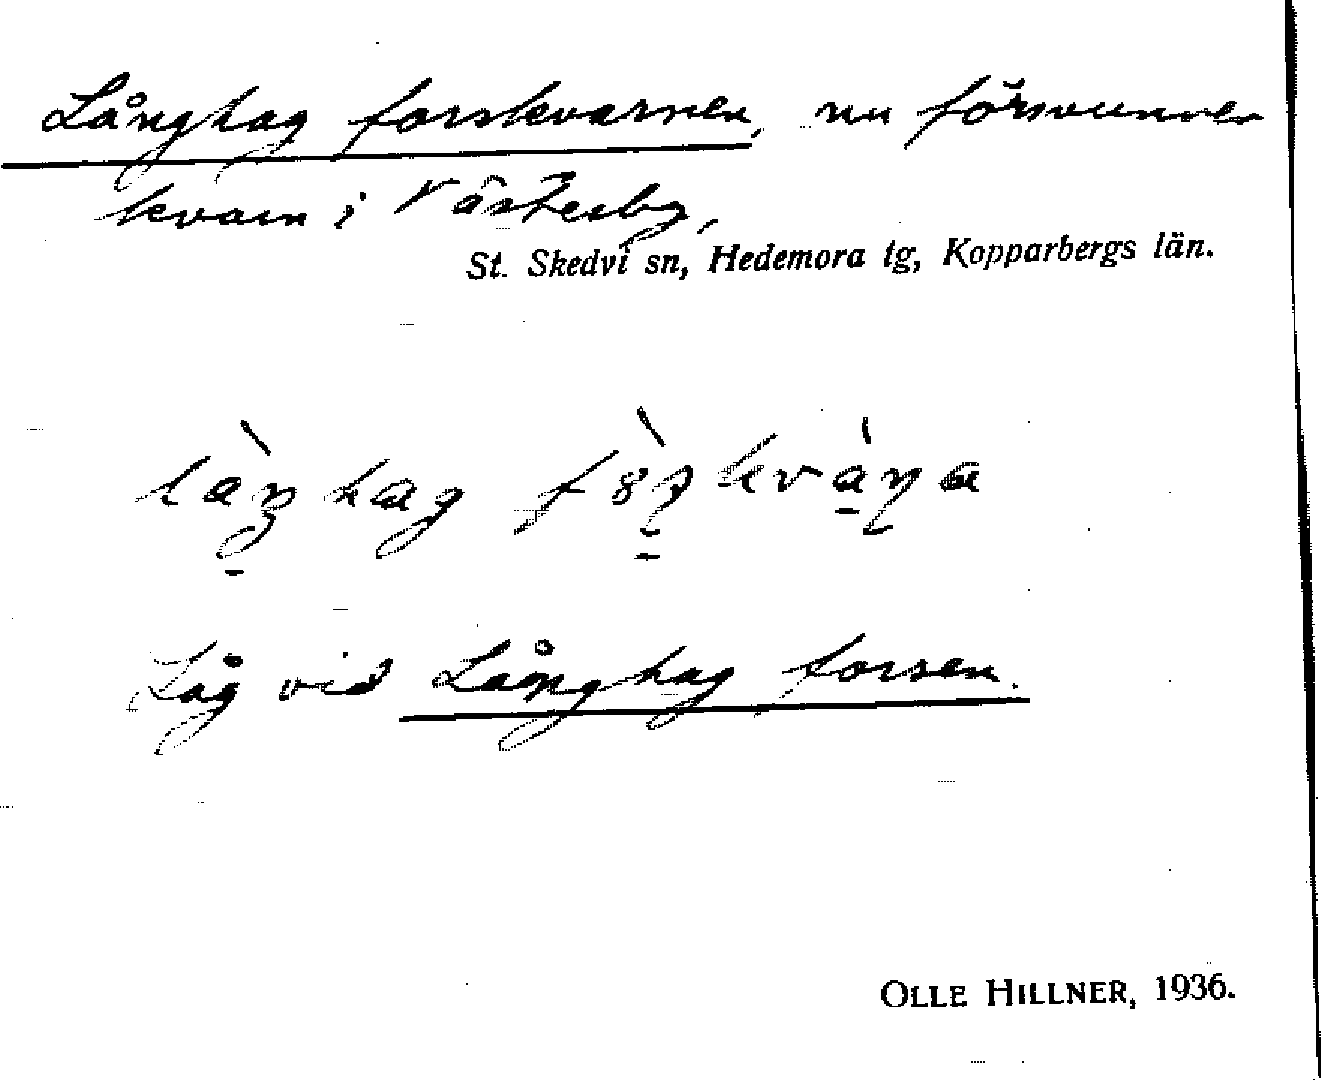 Långhag forskvarnen, nu försvunnen
kvarn i Västerby,
St. Skedvi sn, Hedemora tg, Kopparbergs län.
Låg vid Långhag forsen.
OLLE HILLNER, 1936.